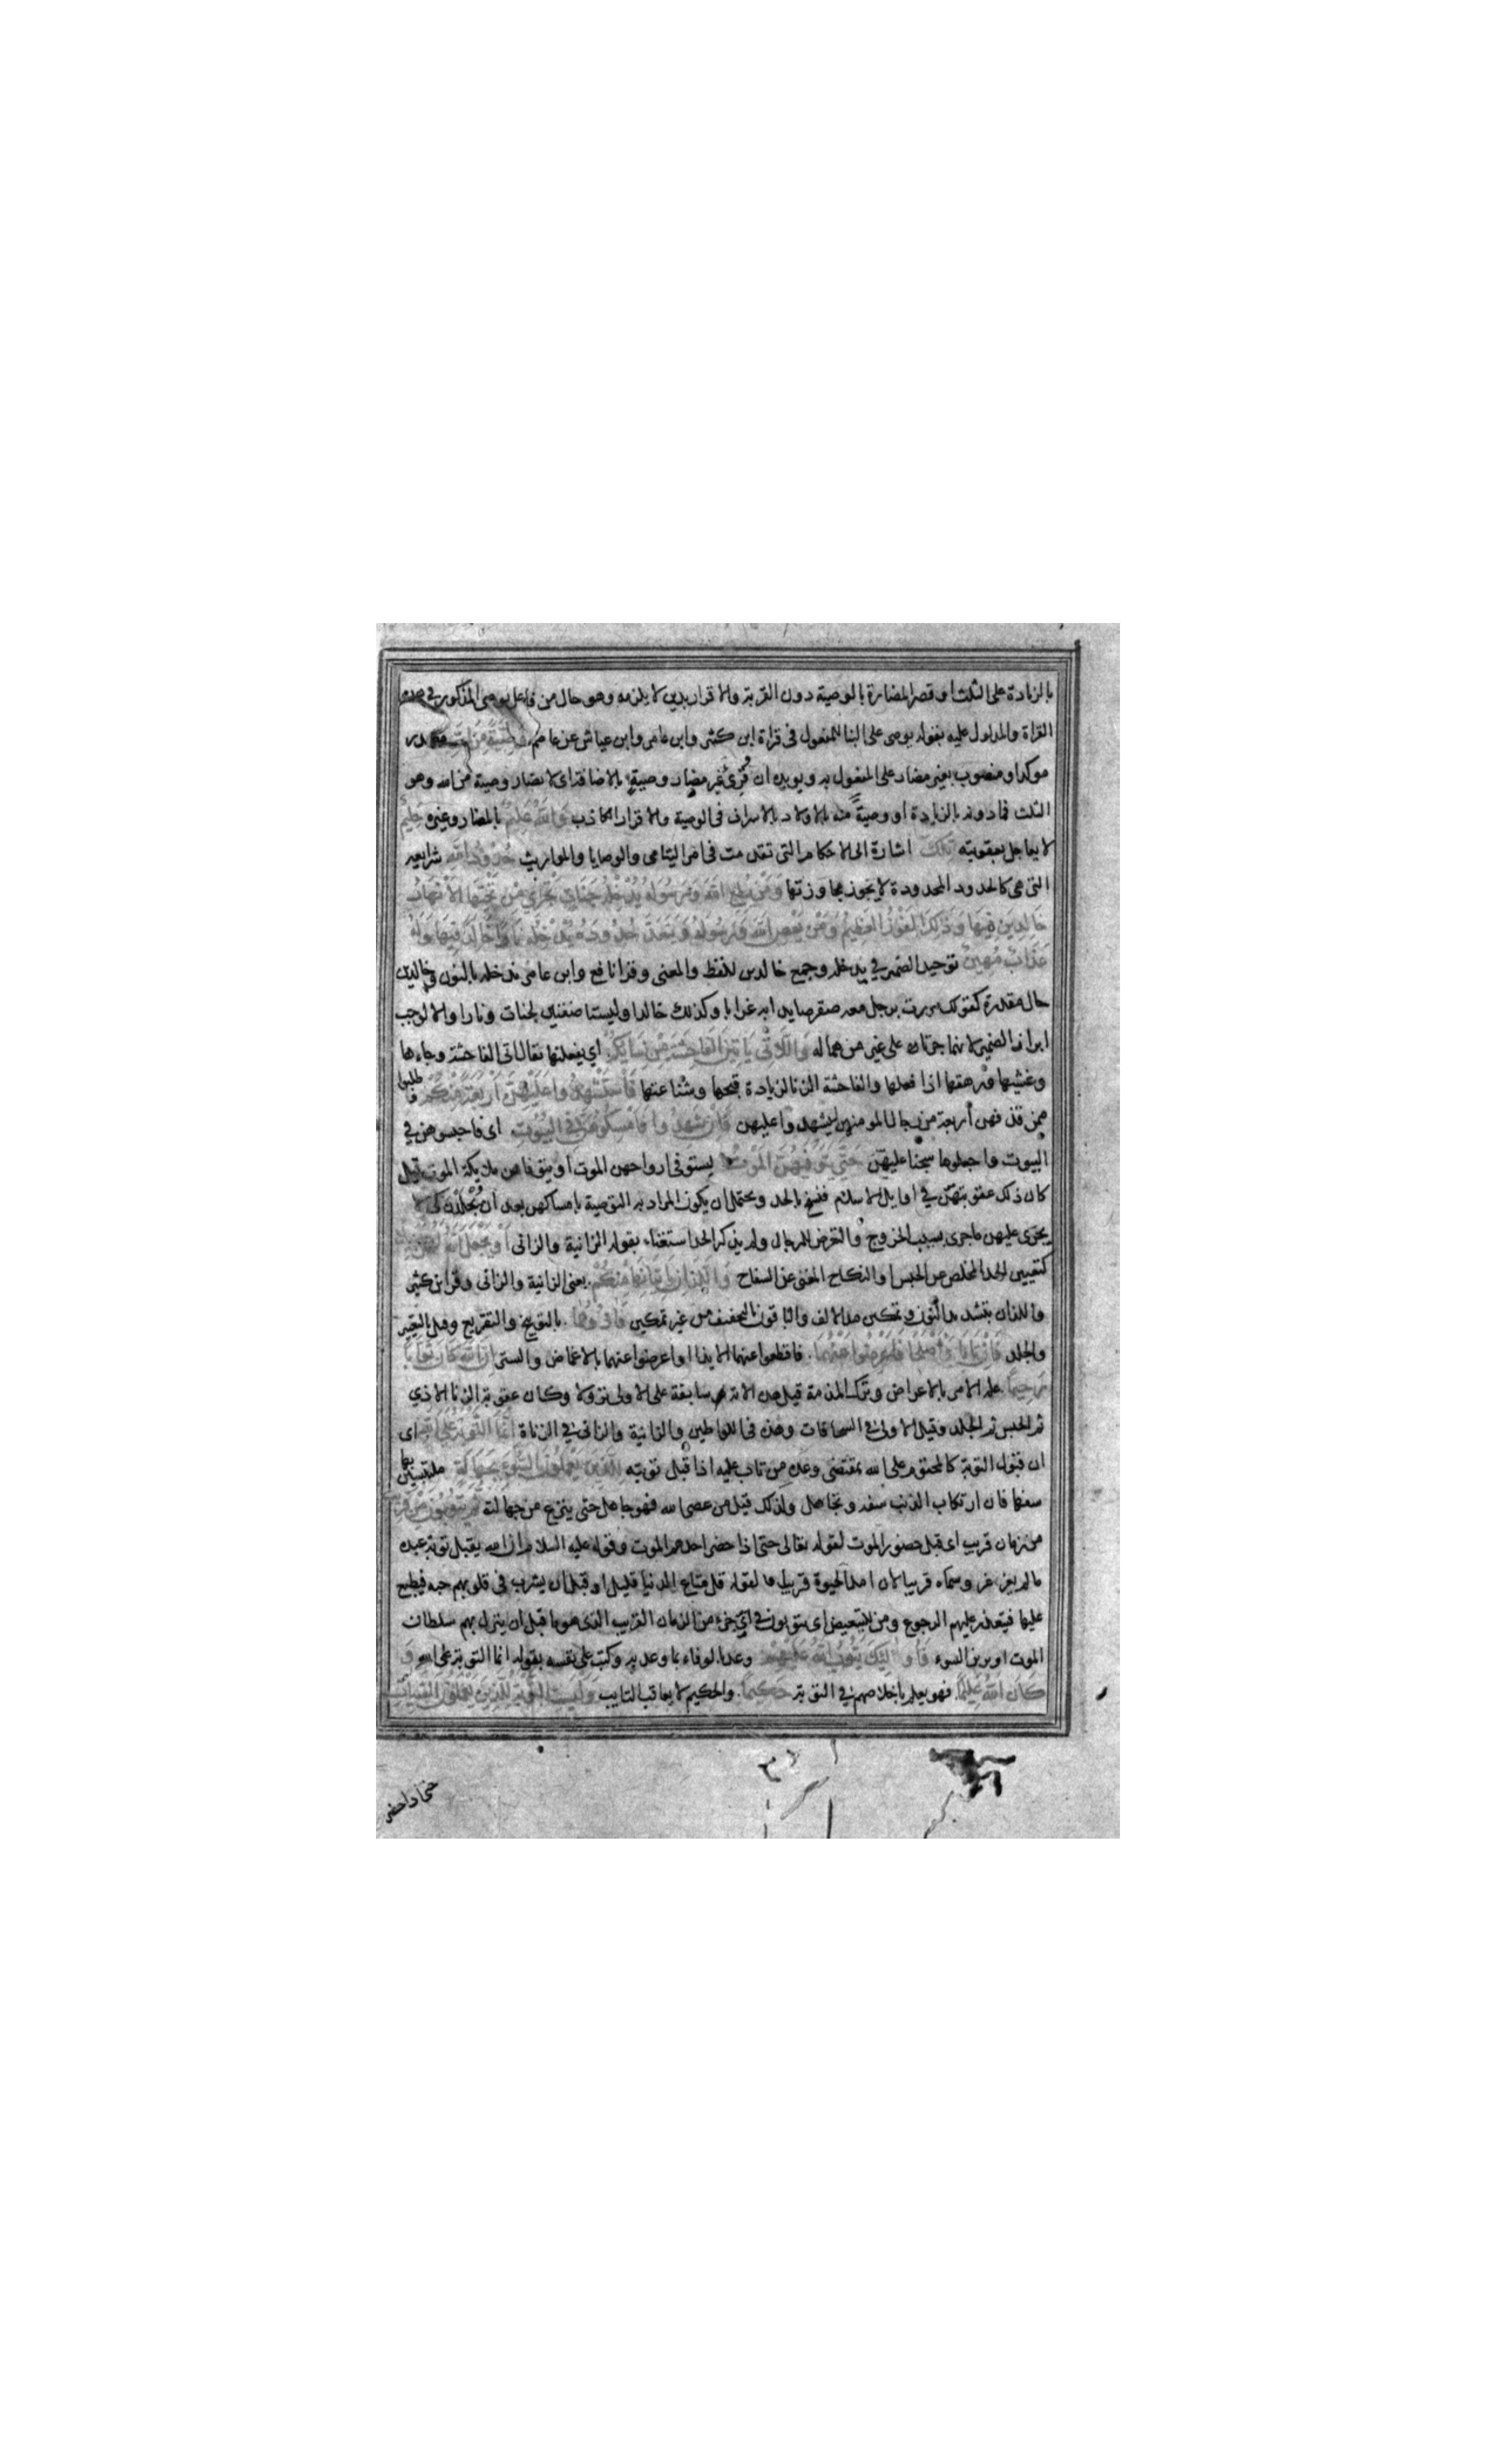 بالزيادة على الثلث او قصد المضارة بالوصية دون القربة والاقرار بدين لا يلزمه وهو حال من فاعل يوصى المذكور في هذه
القراة والمدلول عليه بقوله يوصى على البنا للمفعول فى قراة ابن كثير وابن عامر وابن عياش عن عاصم وصية من الله مصدر
موكد او منصوب بغير مضار على المفعول به ويويده ان قرئ غير مضار وصية بالاضافة اى لا يضار وصية من الله وهو
الثلث فما دونه بالزيادة او وصية منه بالاولاد بالاسراف فى الوصية والاقرار الكاذب والله عليم بالمضار وغيره حليم
لا يعاجل بعقوبته تلك اشارة الى الاحكام التى تقدمت فى امر اليتامى والوصايا والمواريث حدود الله شرايعه
التى هى كالحدود المحدودة لا يجوز مجاوزتها ومن يطع الله ورسوله يدخله جنات تجري من تحتها الانهار
خالدين فيها وذلك الفوز العظيم ومن يعص الله ورسوله ويتعد حدوده يدخله نارا خالدا فيها وله
عذاب مهين توحيد الضمير في يدخله وجمع خالدين للفظ والمعنى وقرا نافع وابن عامر ندخله بالنون وخالدين
حال مقدرة كقولك مررت برجل معه صقر صايدا به غدا وكذلك خالدا وليستا صفتين لجنات ونارا والا لوجب
ابراز الضمير لانهما جرتا على غير من هما له واللاتي ياتين الفاحشة من نسايكم اي يفعلنها يقال اتى الفاحشة وجاءها
وغشيها ورهقها اذا فعلها والفاحشة الزنا لزيادة قبحها وشناعتها فاستشهدوا عليهن اربعة منكم فاطلبوا
ممن قذفهن أربعة من رجال المومنين ليشهدوا عليهن فان شهدوا فامسكوهن في البيوت اى فاحبسوهن في
البيوت واجعلوها سجنا عليهن حتي يتوفيهن الموت يستوفى ارواحهن الموت او يتوفاهن ملايكة الموت قيل
كان ذلك عقوبتهن في اوايل الاسلام فنسخ بالحد ويحتمل ان يكون المراد به التوصية بامساكهن بعد ان يجلدن كى لا
يجرى عليهن ما جرى بسبب الخروج والتعرض للرجال ولم يذكر الحد استغناء بقوله الزانية والزانى او يجعل الله لهن
كتعيين الحد المخلص عن الحبس او النكاح المغنى عن السفاح واللذان ياتيانها منكم يعنى الزانية والزانى وقرا ابن كثير
واللذان بتشديد النون وتمكين مد الالف والباقون بالتخفيف من غير تمكين فاذوهما بالتوبيخ والتقريع وقيل بالتعيير
والجلد فان تابا واصلحا فاعرضوا عنهما فاقطعوا عنهما الايذا او اعرضوا عنهما بالاغماض والستر ان الله كان توابا
رحيما علة الامر بالاعراض وترك المذمة قيل هذه الاية سابقة على الاولى نزولا وكان عقوبة الزنا الاذي
ثم الحبس ثم الجلد وقيل الاولى في السحاقات وهذه فى اللواطين والزانية والزانى في الزناة انما التوبة على الله اى
ان قبول التوبة كالمحتوم على الله بمقتضى وعده من تاب عليه اذا قبل توبته للذين يعملون السوء بجهالة ملتبسين بها
سفها فان ارتكاب الذنب سفه وتجاهل ولذلك قيل من عصى الله فهو جاهل حتى ينزع من جهالته ثم يتوبون من قريب
من زمان قريب اى قبل حضور الموت لقوله تعالى حتى اذا حضر احدهم الموت وقوله عليه السلام ان الله يقبل توبة عبده
مالم يغرغر وسماه قريبا لان امد الحيوة قريب لقوله قل متاع الدنيا قليل او قبل ان يشرب فى قلوبهم حبه فيطبع
عليها فيتعذر عليهم الرجوع ومن للتبعيض اى يتوبون في اي جزء من الزمان القريب الذى هو ما قبل ان ينزل بهم سلطان
الموت او يزين السوء فاوليك يتوب الله عليهم وعد بالوفاء بما وعد به وكتب على نفسه بقوله انما التوبة على الله و
كان الله عليما فهو يعلم باخلاصهم في التوبة حكيما والحكيم لا يعاقب التايب وليست التوبة للذين يعملون السيات
حتى اذا حضر